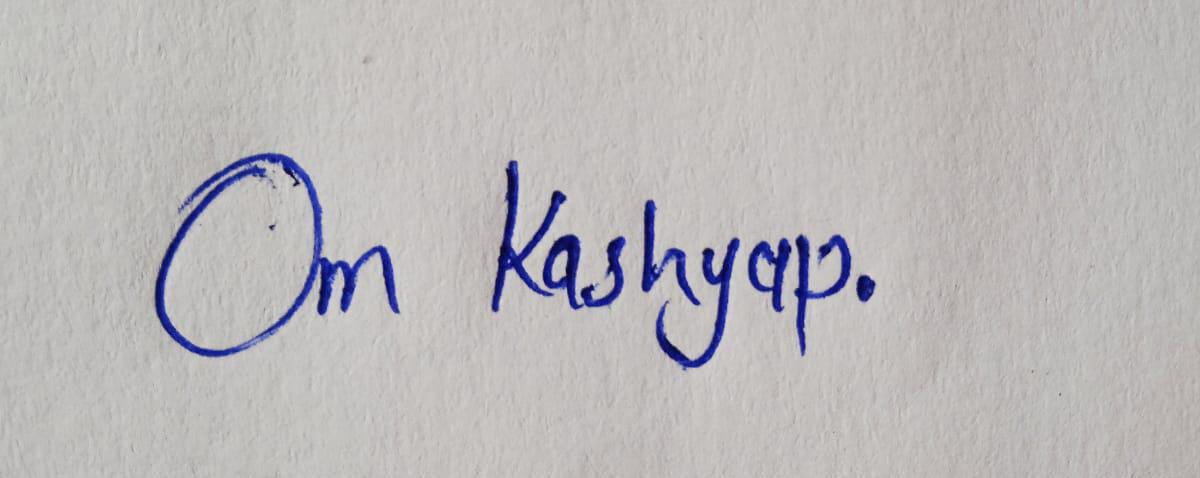 Om Kashyap.